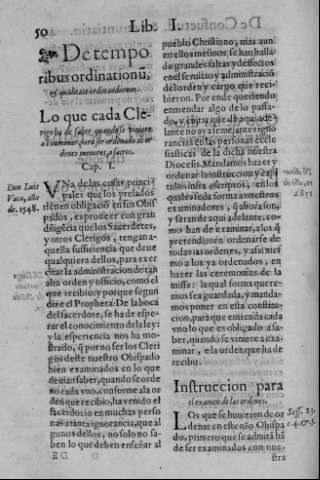 50
Lib. I.
De tempo
ribus ordinationũ,
& qualitate ordinandorum.
Lo que cada Cle-
rigo ha de saber, quando se viniere
a examinar, para ser ordenado de or
denes menores, o sacros.
Cap. I.
Don Luis
Vaca, año
de. 1548.
VNa de las cosas princi-
pales que los prelados
tienen obligaciõ en sus Obis
pados, es proueer con gran
diligēcia que los Sacerdotes,
y otros Clerigos, tengan a-
quella sufficiencia que deue
qualquiera dellos, para exer
citar la administracion de tan
alta orden y officio, como el
que recibio: y porque segun
dize el Propheta: De la boca
del sacerdote, se ha de espe-
rar el conocimiento de la ley:
y la esperiencia nos ha mo-
strado, q̃ por no ser los Cleri
gos deste nuestro Obispado
bien examinados en lo que
deuian saber, quando se orde
nò cada vno, conforme a la or
den que recibio, ha venido el
sacerdocio en muchas perso
nas a tanta ignorancia, que al
gunos dellos, no solo no sa-
ben lo que deuen enseñar al
pueblo Christiano, mas aun
en ellos mesmos se han halla
do grandes faltas y deffectos
en el seruicio y administraciõ
del orden y cargo que reci-
bieron. Por ende queriendo
enmendar algo de lo passa-
do, y euitar que de aqui ade-
lante no aya semejantes igno
rancias en las personas eccle
siasticas de la dicha nuestra
Diocesis. Mandamos hazer y
ordenar la instruccion y capi
tulos infra escriptos, en los
quales se da forma a nuestros
examinadores, q̃ ahora son,
y seran de aqui adelante, co-
mo han de examinar, a los q̃
pretendieren ordenarse de
todas las ordenes, y assi mes-
mo a los ya ordenados, en
hazer las ceremonias de la
missa: la qual forma quere-
mos sea guardada, y manda-
mos poner en esta constitu-
cion, para que entienda cada
vno lo que es obligado a sa-
ber, quando se viniere a exa-
minar, e la orden que ha de
recibir.
Instruccion para
el examen de las ordenes.
Sess. 23.
c. 4. & 5.
LOs que se huuieren de or
denar en este nr̃o Obispa
do, primero que se admitã há
de ser examinados con nue-
stra